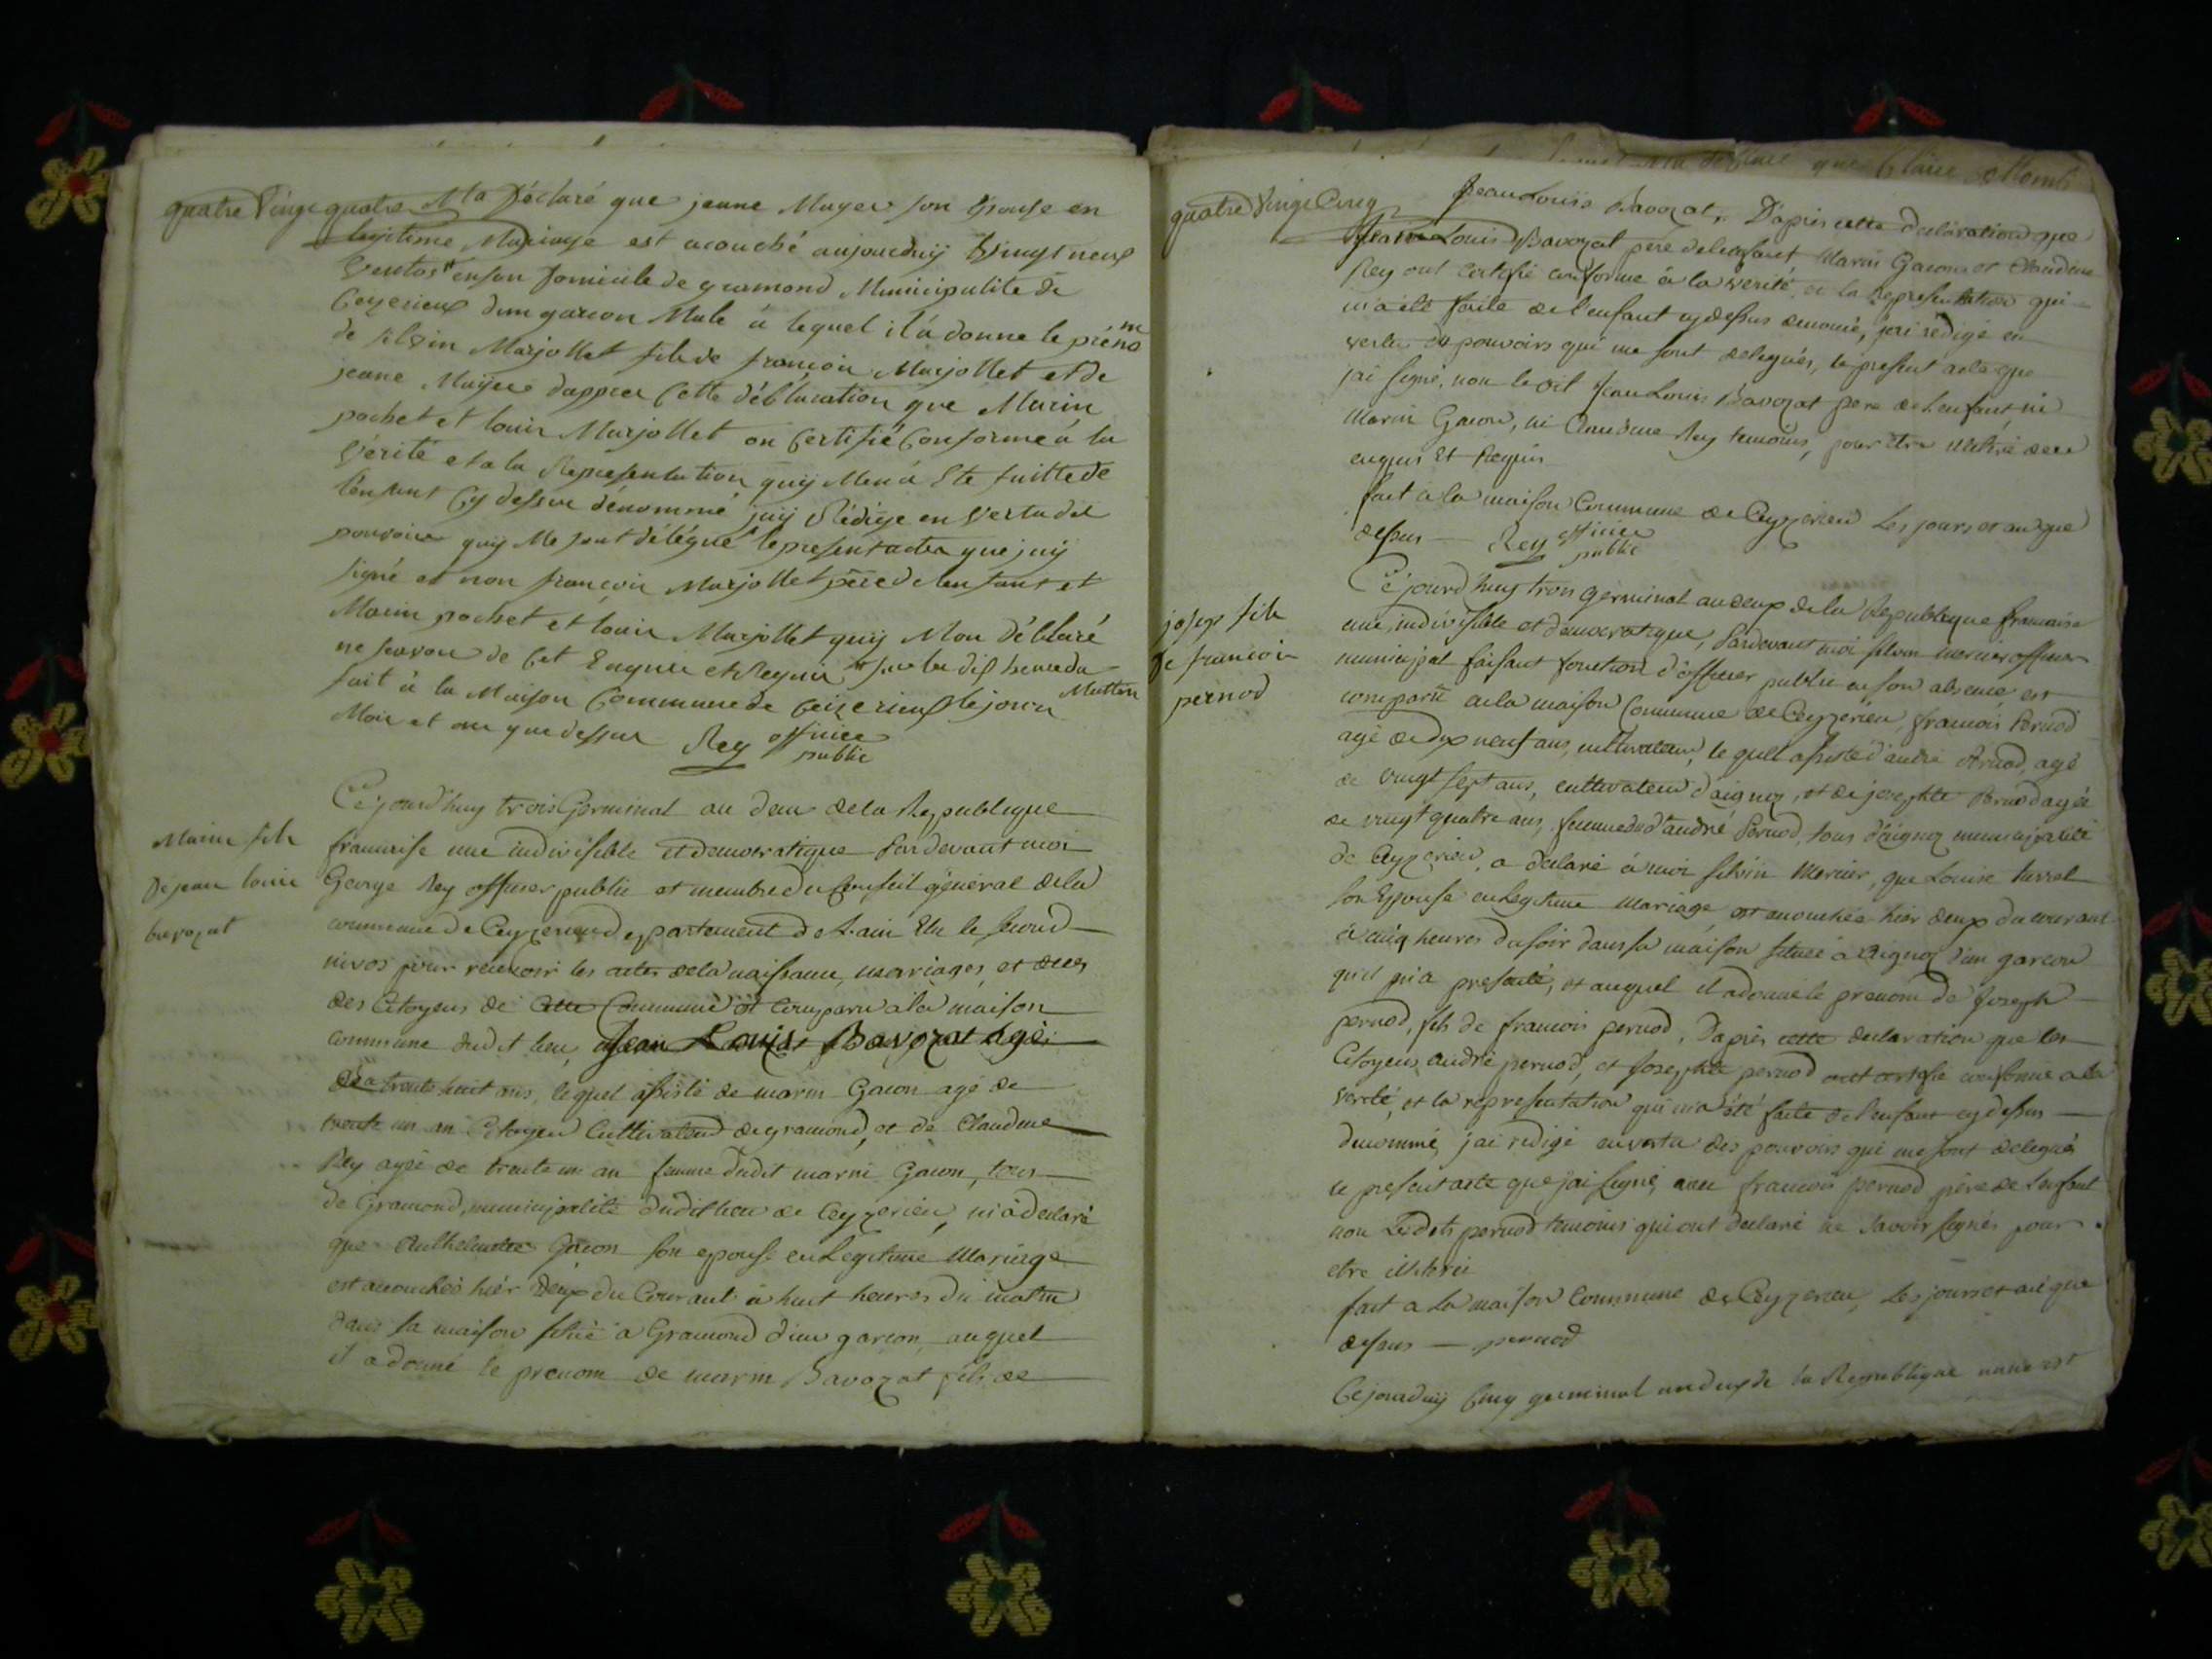 quatre Vingt quatre M'a Déclaré que jeane Muger son Epouse en
legitime Mariage est acouché aujourduij Vingt neuf
Ventos en son Domicile de gramond Municipalité de
Ceyzerieux dun garcon Male a lequel il a donne le préno m
de silvin Marjollet fils de françois Marjollet et de
jeane Muger dapprer Cette déblaration que Marin
pochet et louis Marjollet on Certifié Conforme a la
Vérité et a la Representation quij Men a Ete faitte de
lenfant Cy dessu dénommé jaij Rédige en Vertu des
pouvoirs quij Me sont délégué le present acte que jaij
signé et non françois Marjollet père de lenfant et
Marin pochet et louis Marjollet quij Mon déblaré
ne savoir de Cet Enquis et Requis sur les dis heure du Mattin
fait à la Maison Commune de Ceizerieux le jour
Mois et an que dessus Rey officier
public
Marin fils
De jean louis
bavozat
Cejourd'huy trois Germinal an deux de la Republique
francaise une indivisible et democratique Pardevant moi
George Rey officier public et membre du Conseil général de la
commune de Ceyzerieu departement de L'ain Elu le second
nivos pour recevoir les actes de la naissance, mariages, et deces
des Citoyens de Cette Commune est Comparu a la maison
commune dudit lieu Jean Louis Bavozat agé
de trente huit ans, lequel assisté de marin Gacon agé de
trente un an Citoyen Cultivateur de gramond, et de Claudine
Rey agée de trente un an femme dudit marin Gacon, tous
de Gramond, municipalité dudit lieu de Ceyzerieu, m'a declaré
que Gacon son epouse en Legitime Mariage
est acouchée hiér deux du Courant à huit heures du matin
dans sa maison située a Gramond d'un garcon, auquel
il a donné le prenom de marin Bavozat fils de
quatre Vingt Cinq Jean Louis Bavozat, D'après cette declaration que
Jean Louis Bavozat père de lenfant Marin Gacon et Claudine
Rey ont certifié conforme à la verité et la Representation qui
m'a été faite de l'enfant cydessus denomé, j'ai rédigé en
vertu des pouvoirs qui me sont delegués, le present acte que
jai signé, non le dit Jean Louis Bavozat pere de Lenfant, ni
Marin Gacon, ni Claudine Rey temoins, pour etre illitéré de ce
enquis Et Requis
fait à la maison Commune de Ceyzerieu Les jours et an que
dessus — Rey officier
public
josep fils
De francois
pernod
Cejourd'huy trois germinal an deux de la Republique francaise
une, indivisible et democratique, Pardevant moi silvin mercier officier
municipal faisant fonction d'officier public en son absence est
comparu a la maison Commune de Ceyzerieu, francois Pernod
agé de dix neuf ans, cultivateur, le quel assisté d'andré Pernod, agé
de vingt sept ans, cultivateur d'aignoz, et de josephte Pernod agée
de vingt quatre ans, femme dud. d'andré Pernod, tous d'aignoz municipalité
de Ceyzerieu, a declaré à moi silvin Mercier, que Louise turrel
son Epouse en Legitime Mariage est acouchée hier deux du courant
à cinq heures du soir dans sa maison située à Aignoz d'un garcon
qu'il m'a presenté, et auquel il a donné le prenom de Joseph
pernod, fils de francois pernod, D'après cette declaration que les
Citoyens andré pernod, et Josephte pernod ont certifié conforme a la
verité, et la répresentation qui m'a été faite de l'enfant cydessus
denommé, j'ai redigé en vertu des pouvoirs qui me sont delegués
le present acte que j'ai signé, avec francois pernod père de Lenfant
non Lesdits pernod temoins qui ont declaré ne savoir signer pour
etre illiterée
fait a La maison Commune de Ceyzerieu, Les jours et an que
dessus — pernod
Cejourduij Cinq germinal an deux de la Republique une et